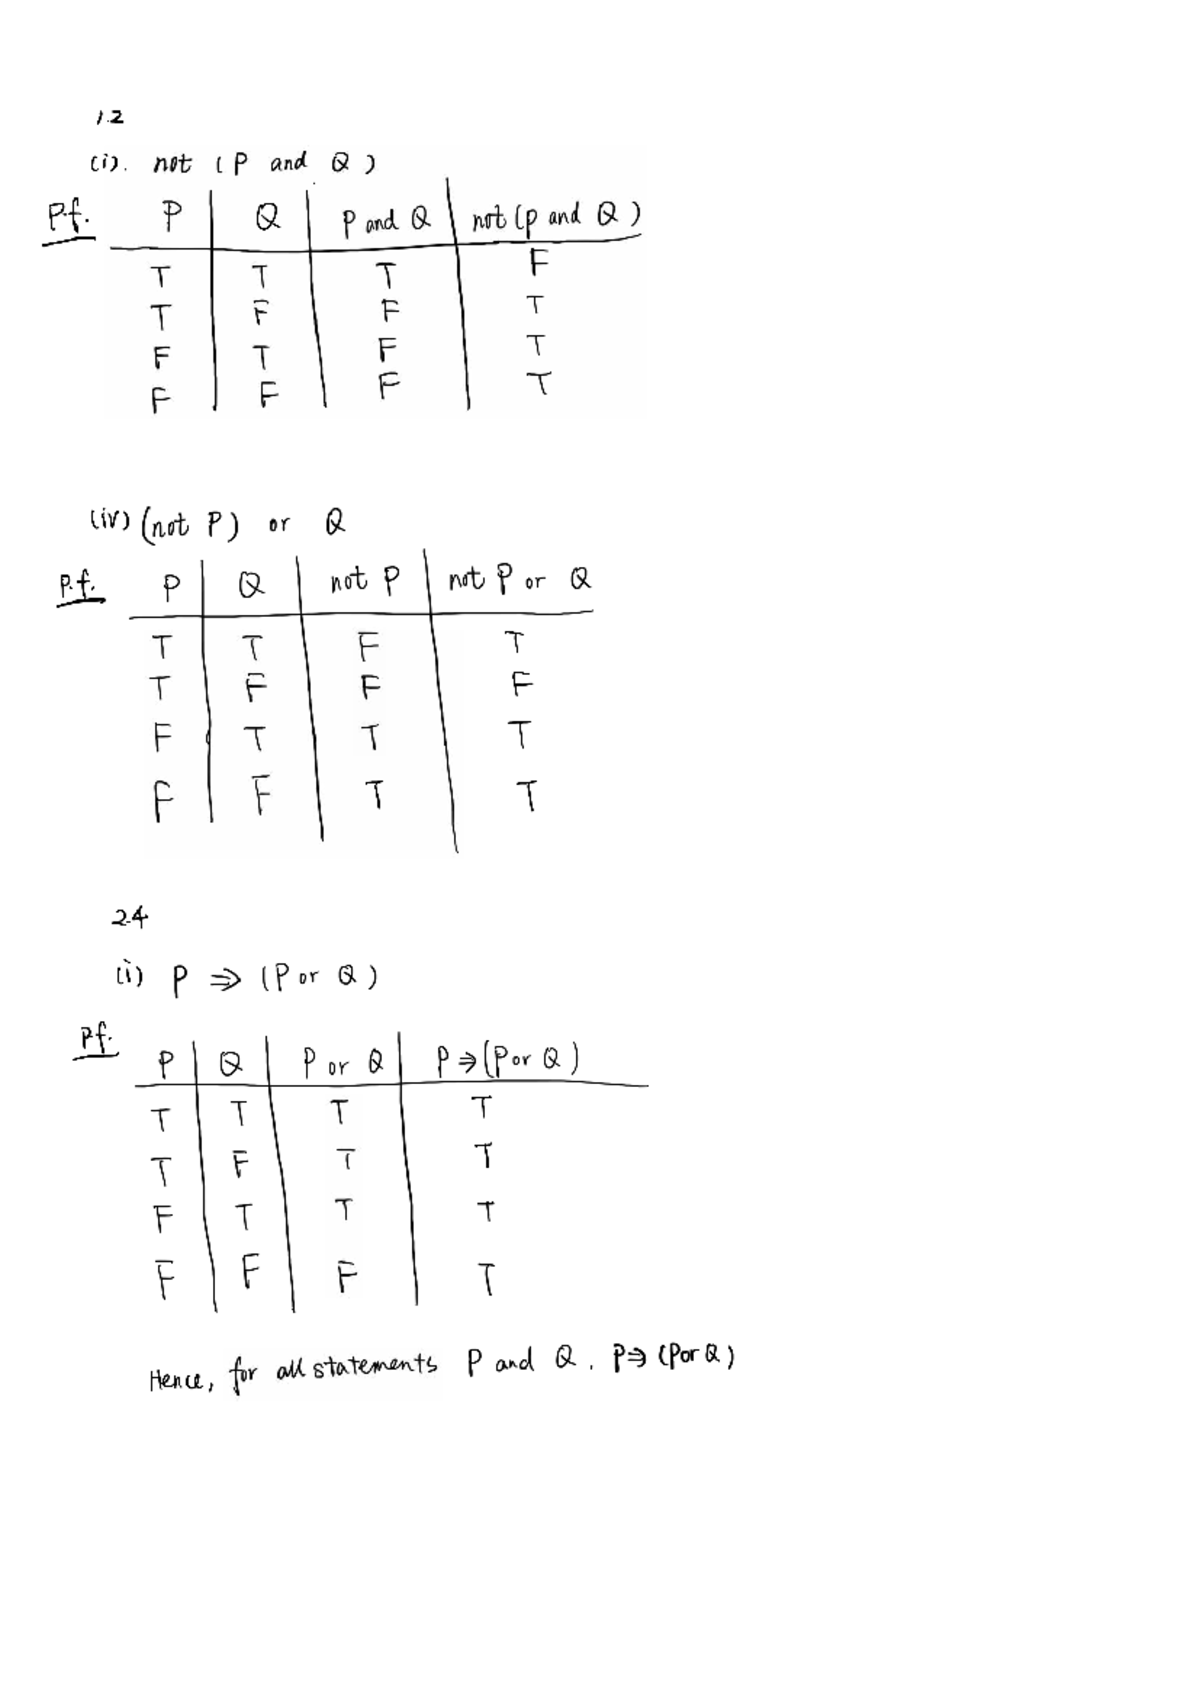 1.2
(i). not (P and Q)
P.f. P Q P and Q not (p and Q)
T T T F
T F F T
F T F T
F F F T
(iv) (not P) or Q
P.f. P Q not P not P or Q
T T F T
T F F F
F T T T
F F T T
2.4
(i) P ⇒ (P or Q)
P.f.
P Q P or Q P ⇒ (P or Q)
T T T T
T F T T
F T T T
F F F T
Hence, for all statements P and Q, P ⇒ (P or Q)